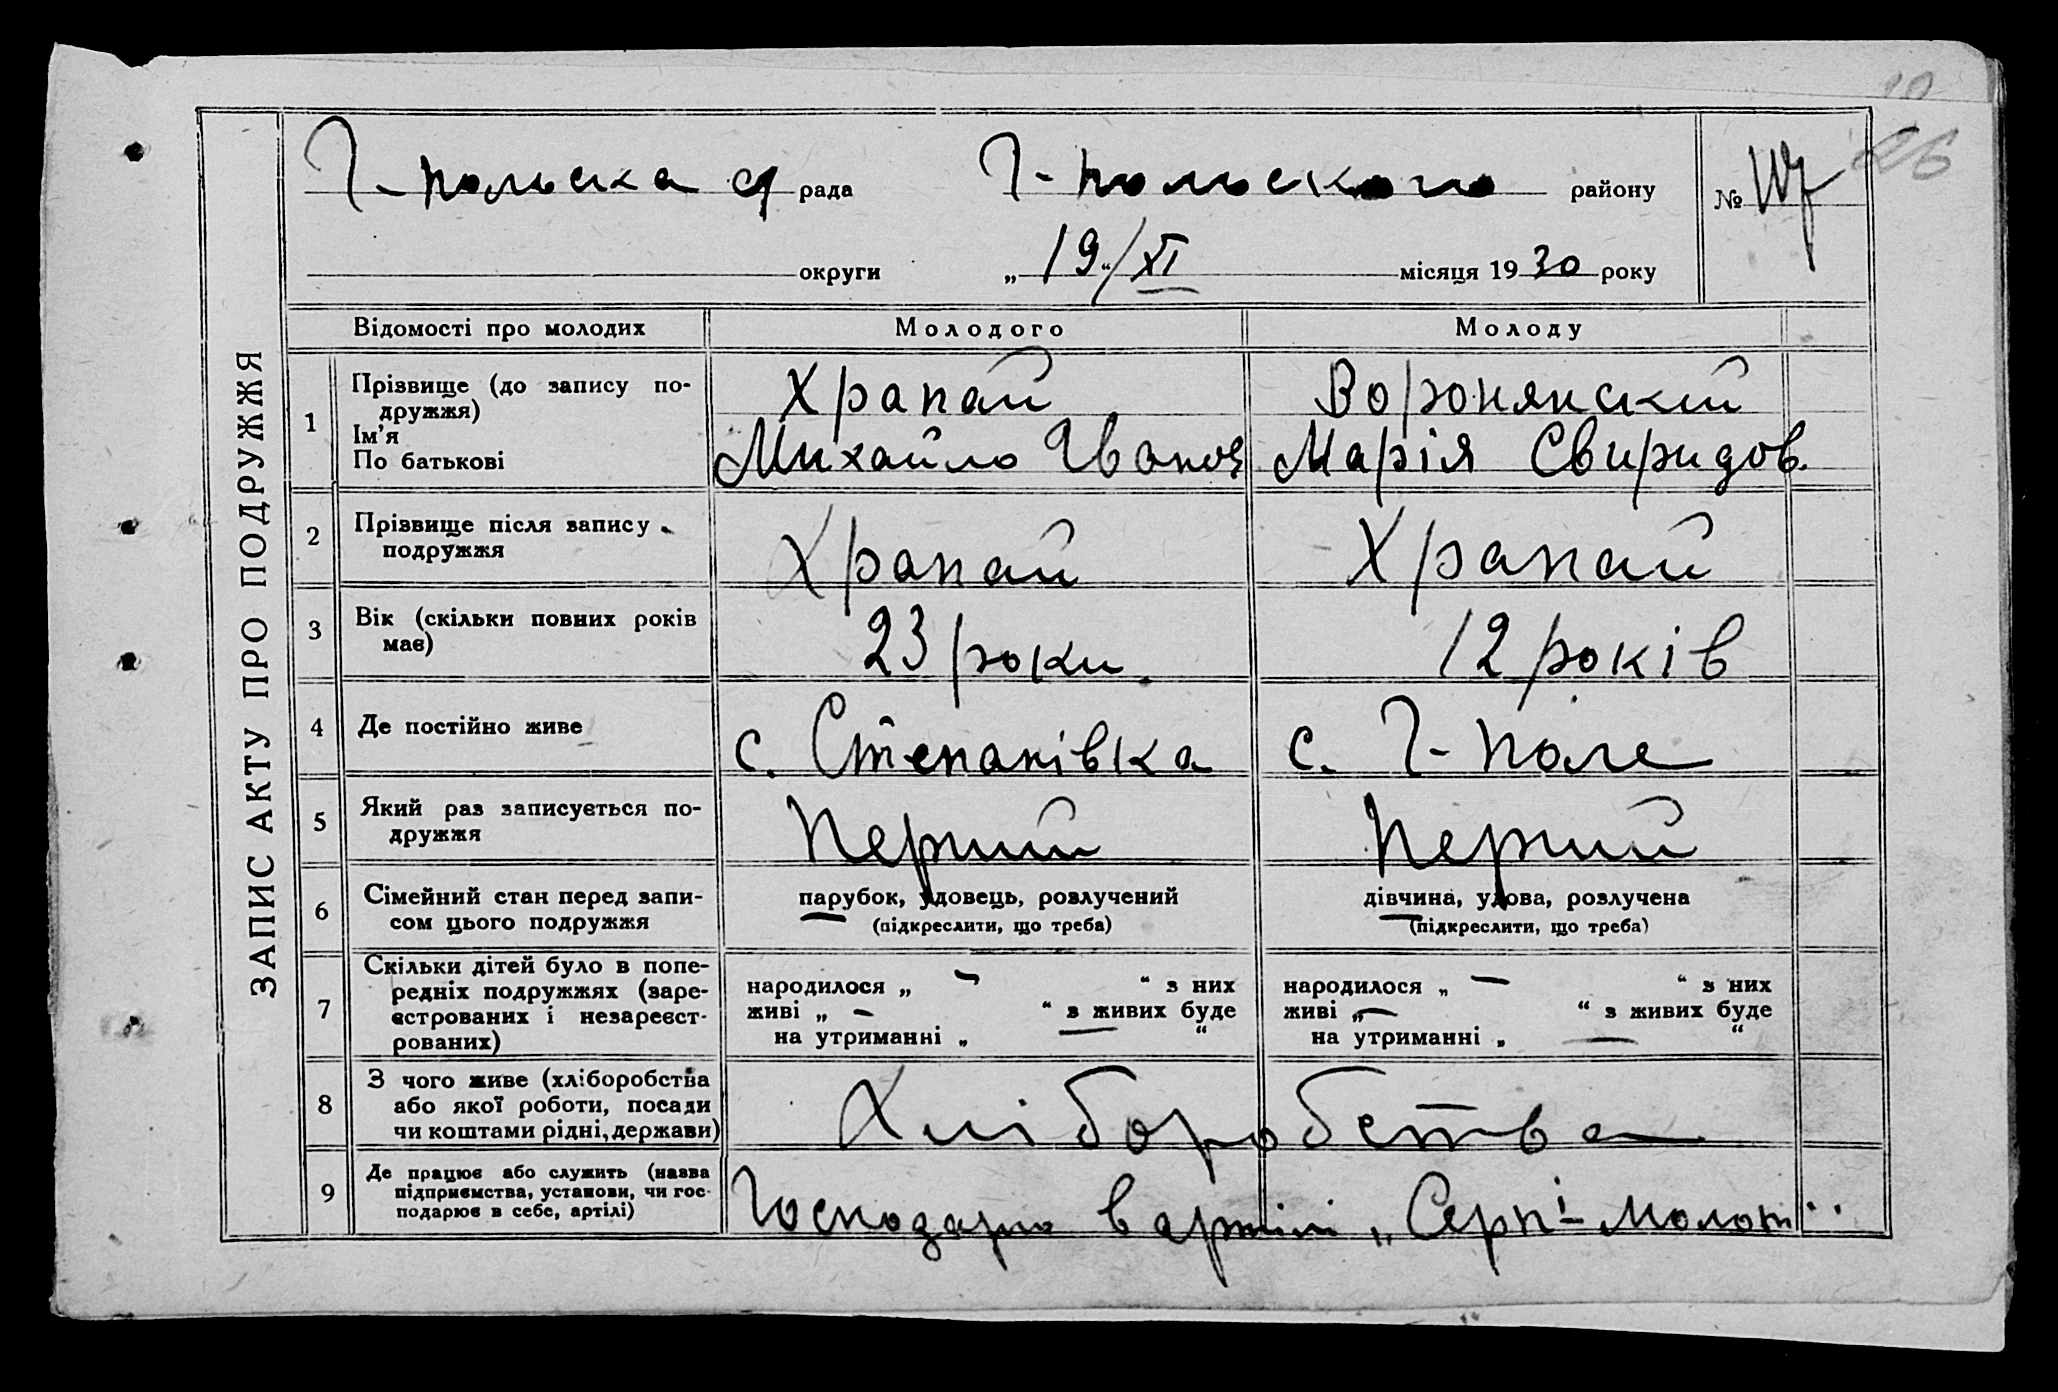 26
Г-польська с/ рада Г-польського району №
округи „19“/XI місяця 1930 року
ЗАПИС АКТУ ПРО ПОДРУЖЖЯ
Відомості про молодих Молодого Молоду
1 Прізвище (до запису по-
дружжя)
Ім'я
По батькові
Храпай
Михайло Іванов
Воронянский
Марія Свиридов.
2 Прізвище після запису
подружжя
Храпай Храпай
3 Вік (скільки повних років
має)
23 роки 12 років
4 Де постійно живе с. Степанівка с. Г-Поле
5 Який раз записується по-
дружжя
Перший Перший
6 Сімейний стан перед запи-
сом цього подружжя
парубок, удовець, розлучений
(підкреслити, що треба)
дівчина, удова, розлучена
(підкреслити, що треба)
7 Скільки дітей було в попе-
редніх подружжях (заре-
єстрованих і незареєст-
рованих)
народилося „ — “ з них
живі „ — “ з живих буде
на утриманні „ — “
народилося „ — “ з них
живі „ — “ з живих буде
на утриманні „ — “
8 З чого живе (хліборобства
або якої роботи, посади
чи коштами рідні, держави)
Хліборобства
9 Де працює або служить (назва
підприємства, установи, чи гос-
подарює в себе, артілі)
Господарює в артілі „Серп і Молот"